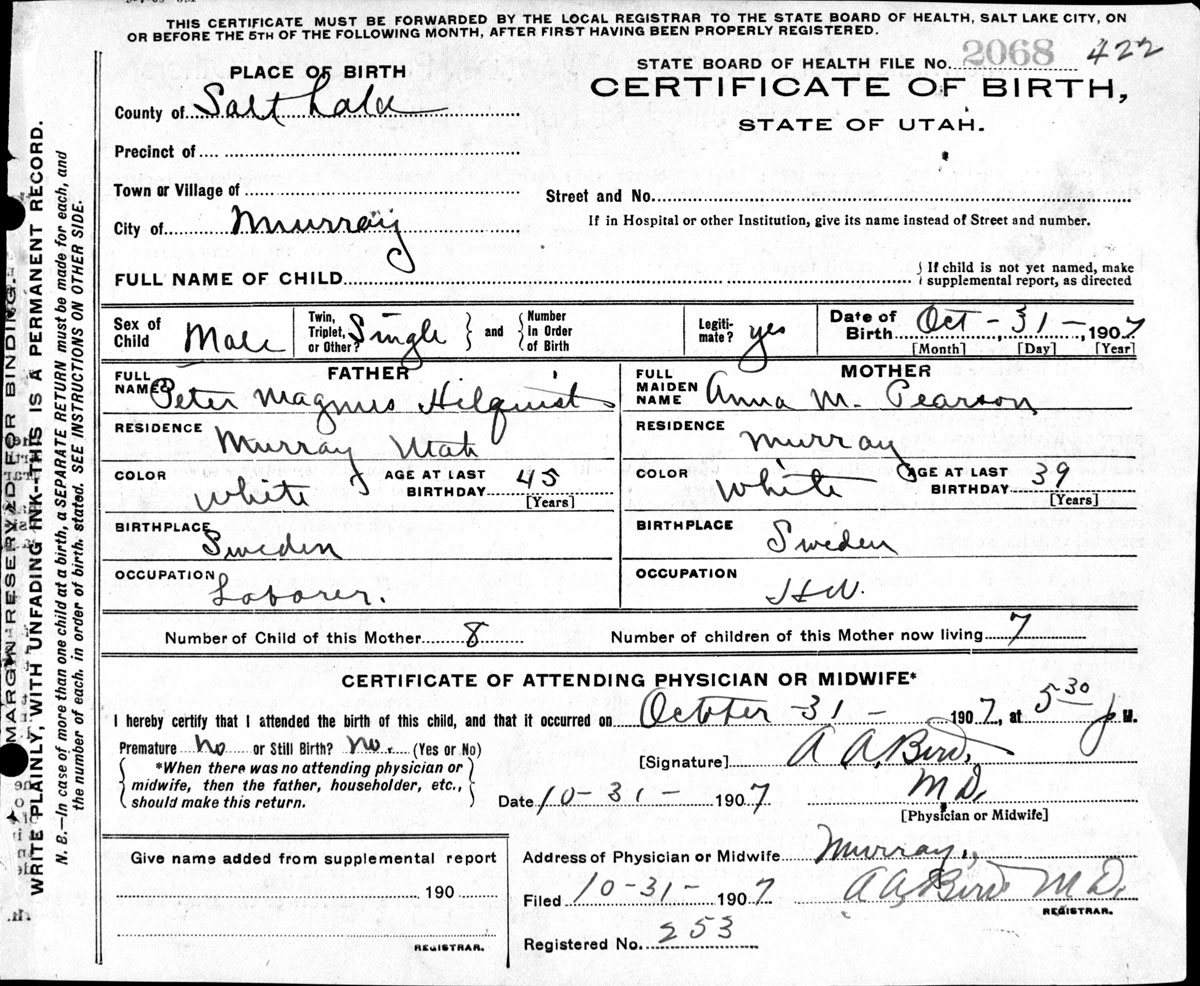 THIS CERTIFICATE MUST BE FORWARDED BY THE LOCAL REGISTRAR TO THE STATE BOARD OF HEALTH, SALT LAKE CITY, ON
OR BEFORE THE 5TH OF THE FOLLOWING MONTH, AFTER FIRST HAVING BEEN PROPERLY REGISTERED.
STATE BOARD OF HEALTH FILE No. 2068 422
CERTIFICATE OF BIRTH,
STATE OF UTAH.
PLACE OF BIRTH
County of Salt Lake
Precinct of
Town or Village of
Street and No.
City of Murray
If in Hospital or other Institution, give its name instead of Street and number.
FULL NAME OF CHILD
If child is not yet named, make
supplemental report, as directed
Sex of Child Male
Twin, Triplet, or Other? Single and Number In Order of Birth
Legiti-mate? yes
Date of Birth Oct - 31 - 1907
[Month] [Day] [Year]
FATHER
FULL NAME Peter Magnus Hilquist
RESIDENCE Murray Utah
COLOR White AGE AT LAST BIRTHDAY 45 [Years]
BIRTHPLACE Sweden
OCCUPATION Laborer.
MOTHER
FULL MAIDEN NAME Anna M. Pearson
RESIDENCE Murray
COLOR White AGE AT LAST BIRTHDAY 39 [Years]
BIRTHPLACE Sweden
OCCUPATION H W.
Number of Child of this Mother 8 Number of children of this Mother now living 7
CERTIFICATE OF ATTENDING PHYSICIAN OR MIDWIFE*
I hereby certify that I attended the birth of this child, and that it occurred on October - 31 - 1907, at 5 30 p M.
Premature No or Still Birth? No. (Yes or No)
*When there was no attending physician or
midwife, then the father, householder, etc.,
should make this return.
[Signature] A A. Bird,
M D.
[Physician or Midwife]
Date 10 - 31 - 1907
Give name added from supplemental report
190
REGISTRAR.
Address of Physician or Midwife Murray,
Filed 10 - 31 - 1907 A A. Bird M D.
REGISTRAR.
Registered No. 253
MARGIN RESERVED FOR BINDING.
WRITE PLAINLY, WITH UNFADING INK--THIS IS A PERMANENT RECORD.
N. B.—In case of more than one child at a birth, a SEPARATE RETURN must be made for each, and
the number of each, in order of birth, stated. SEE INSTRUCTIONS ON OTHER SIDE.